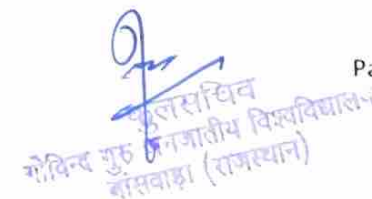 Pa
कुलसचिव
गोविन्द गुरु जनजातीय विश्वविद्यालय
बांसवाड़ा (राजस्थान)